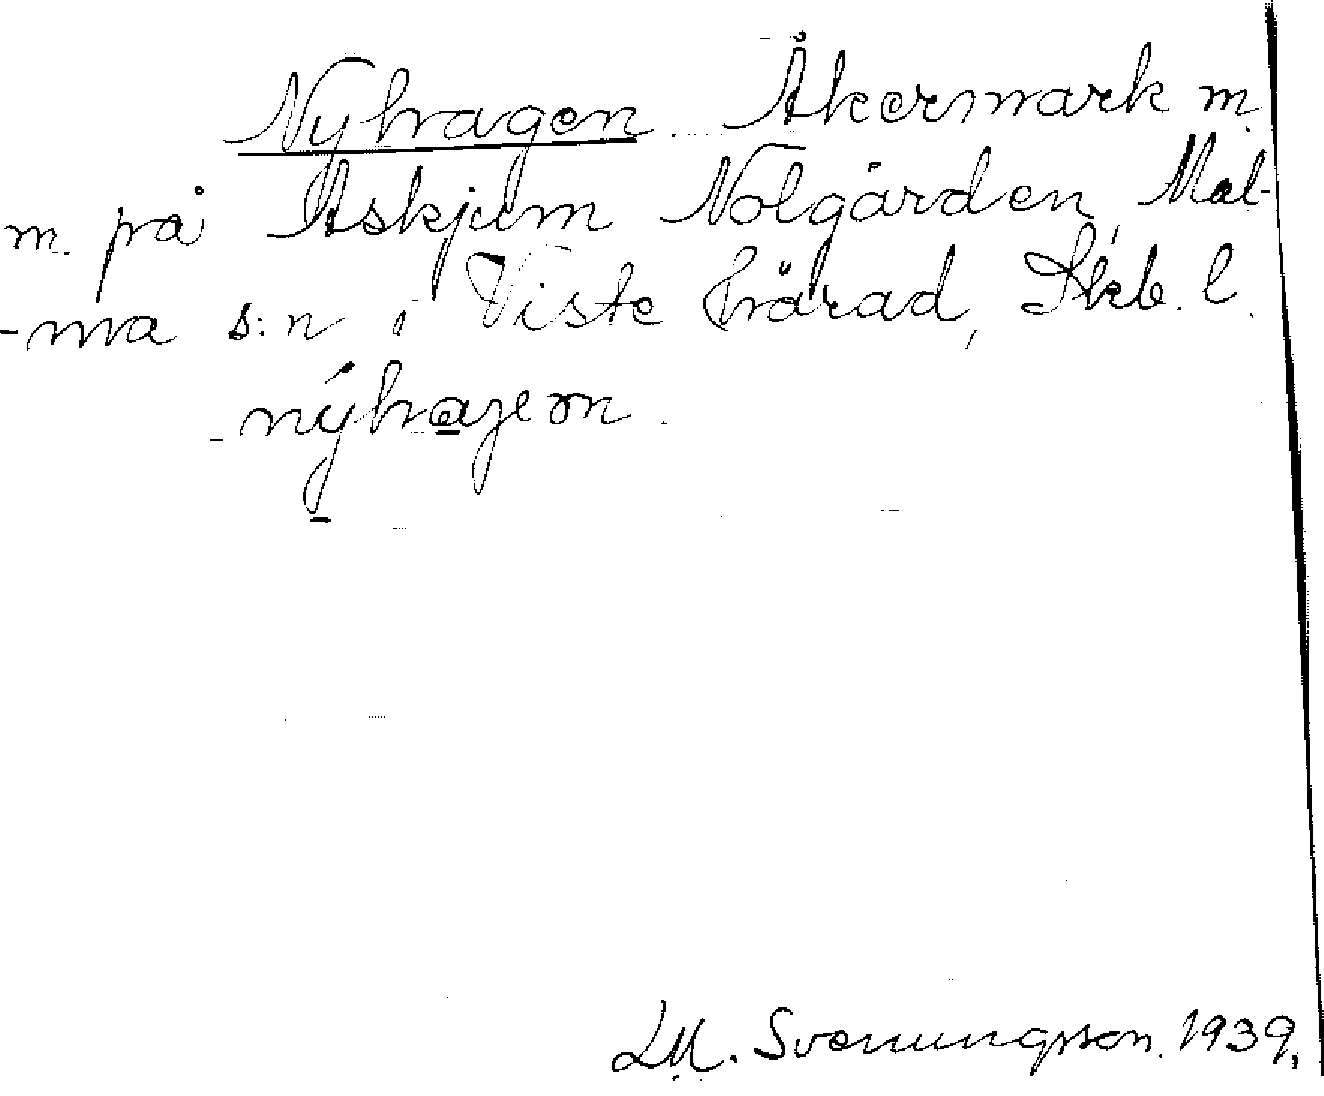 Nyhagen Åkermark m.
m. på Askjum Nolgården, Mal-
-ma s:n i Viste härad, Skb. l.
nýhajen.
L.M. Svenungsson. 1939.